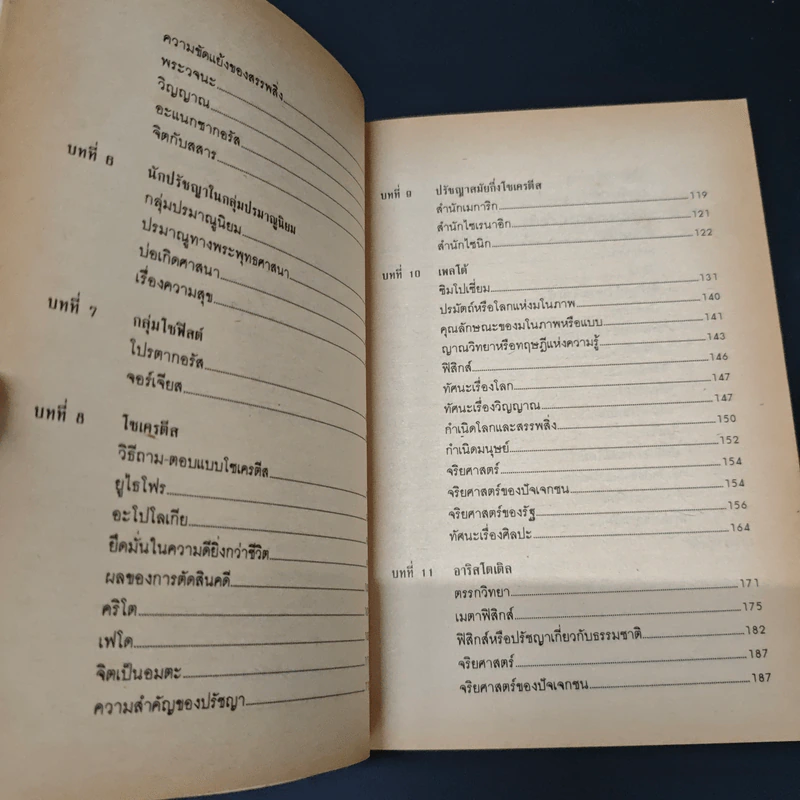 ความขัดแย้งของสรรพสิ่ง
พระวจนะ
วิญญาณ
อะแนกซากอรัส
จิตกับสสาร
บทที่ 6 นักปรัชญาในกลุ่มปรมาณูนิยม
กลุ่มปรมาณูนิยม
ปรมาณูทางพระพุทธศาสนา
บ่อเกิดศาสนา
เรื่องความสุข
บทที่ 7 กลุ่มโซฟิสต์
โปรตากอรัส
จอร์เจียส
บทที่ 8 โซเครตีส
วิธีถาม-ตอบแบบโซเครตีส
ยูไธโฟร
อะโปโลเกีย
ยึดมั่นในความดียิ่งกว่าชีวิต
ผลของการตัดสินคดี
คริโต
เฟโด
จิตเป็นอมตะ
ความสำคัญของปรัชญา
บทที่ 9 ปรัชญาสมัยกึ่งโซเครตีส
สำนักเมการิก 119
สำนักไซเรนาอิก 121
สำนักไซนิก 122
บทที่ 10 เพลโต้
ซิมโปเซี่ยม 131
ปรมัตถ์หรือโลกแห่งมโนภาพ 140
คุณลักษณะของมโนภาพหรือแบบ 141
ญาณวิทยาหรือทฤษฎีแห่งความรู้ 143
ฟิสิกส์ 146
ทัศนะเรื่องโลก 147
ทัศนะเรื่องวิญญาณ 147
กำเนิดโลกและสรรพสิ่ง 150
กำเนิดมนุษย์ 152
จริยศาสตร์ 154
จริยศาสตร์ของปัจเจกชน 154
จริยศาสตร์ของรัฐ 156
ทัศนะเรื่องศิลปะ 164
บทที่ 11 อาริสโตเติล
ตรรกวิทยา 171
เมตาฟิสิกส์ 175
ฟิสิกส์หรือปรัชญาเกี่ยวกับธรรมชาติ 182
จริยศาสตร์ 187
จริยศาสตร์ของปัจเจกชน 187